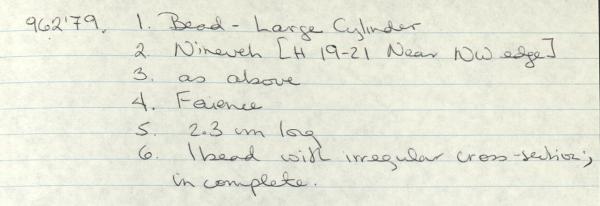 962'79. 1. Bead - Large Cylinder
2 Nineveh [H 19-21 Near NW edge]
3. as above
4. Faience
5. 2.3 cm long
6. 1 bead with irregular cross-section;
incomplete.